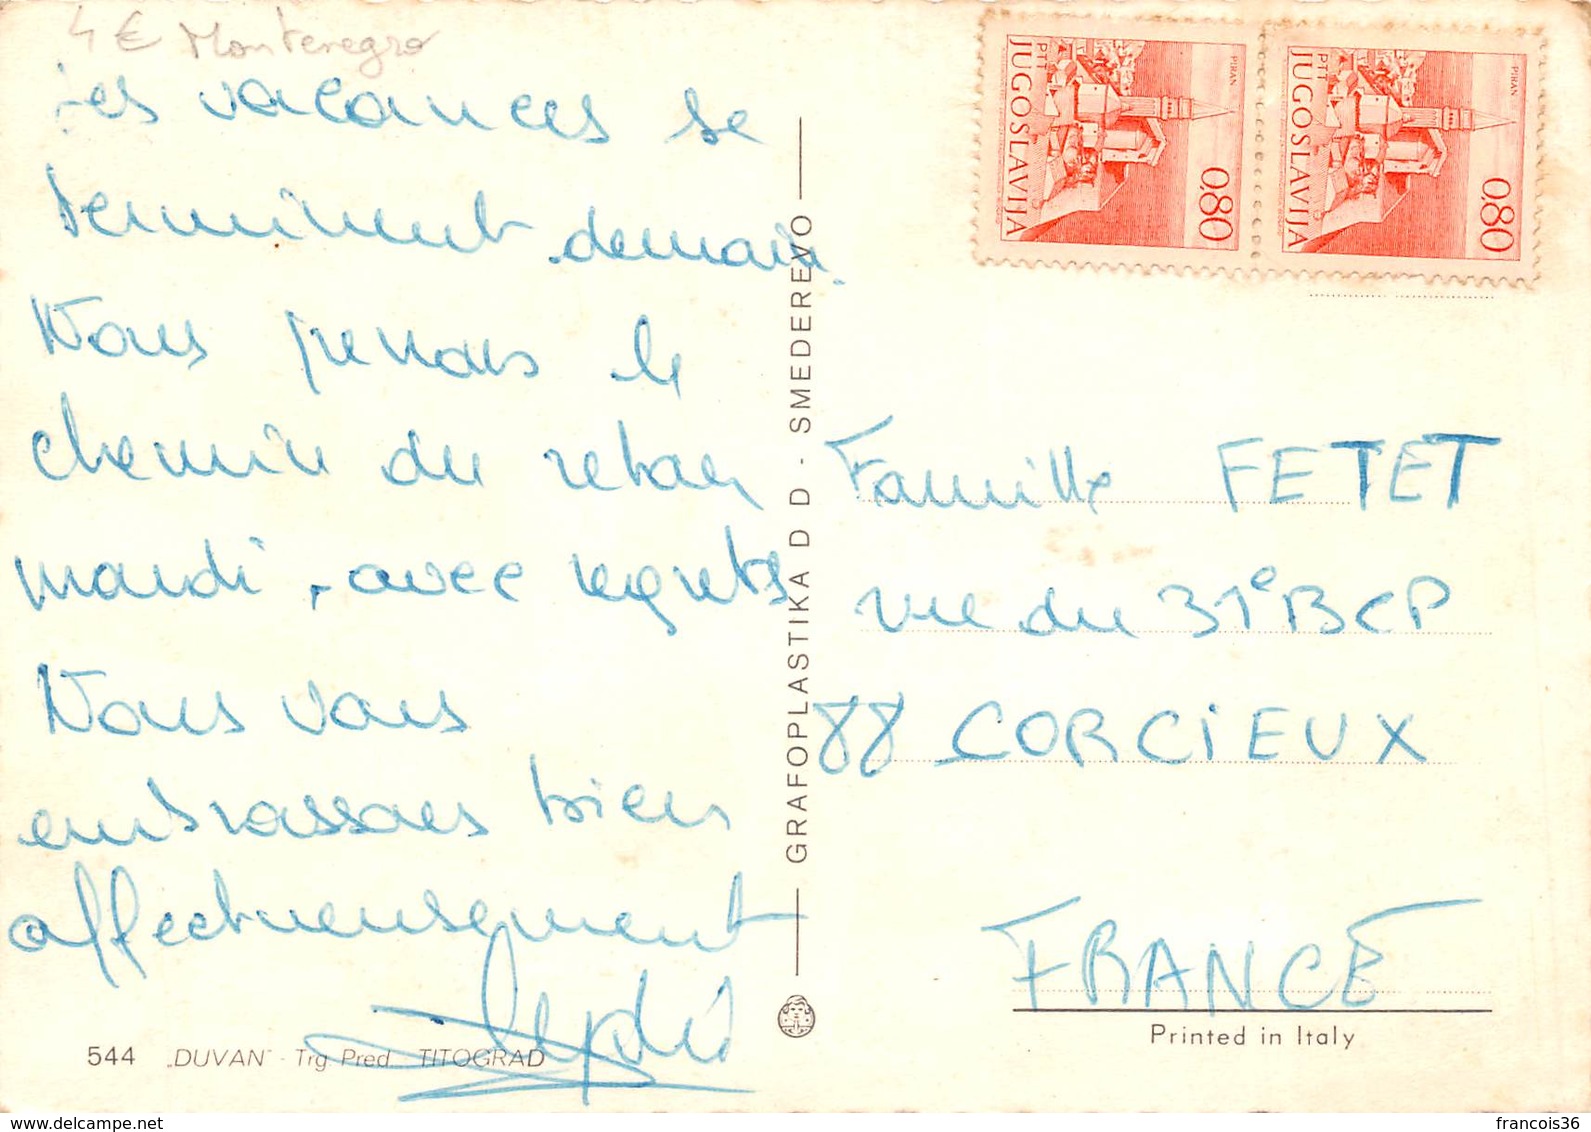 4 € Montenegro
Les vacances se
terminent demain.
Nous prenons le
chemin du retour
mardi, avec regrets
Nous vous
embrassons bien
affectueusement
544 „DUVAN" - Trg. Pred. TITOGRAD
GRAFOPLASTIKA D D - SMEDEREVO
PIRAN
PTT
JUGOSLAVIJA
0,80
PIRAN
PTT
JUGOSLAVIJA
0,80
Famille FETET
rue du 31e BCP
88 CORCIEUX
FRANCE
Printed in Italy
https://www.delcampe.net
francois36